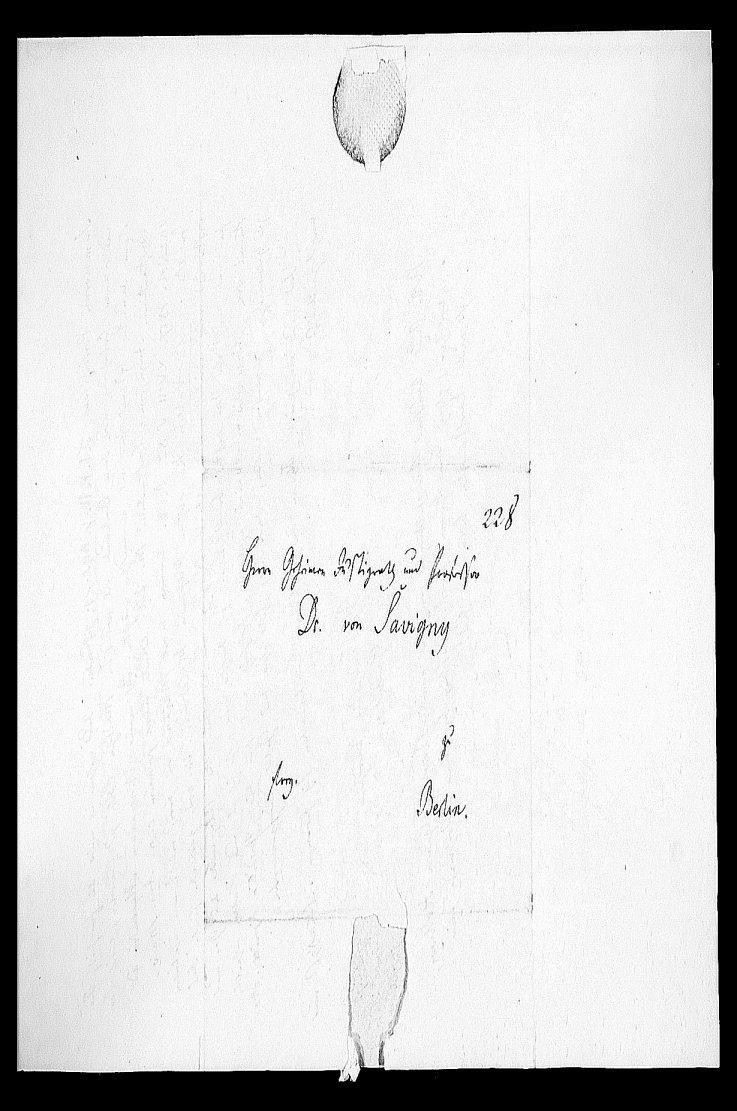 228
Herrn Geheimen Justizrath und Professor
Dr. von Savigny
zu
Berlin.